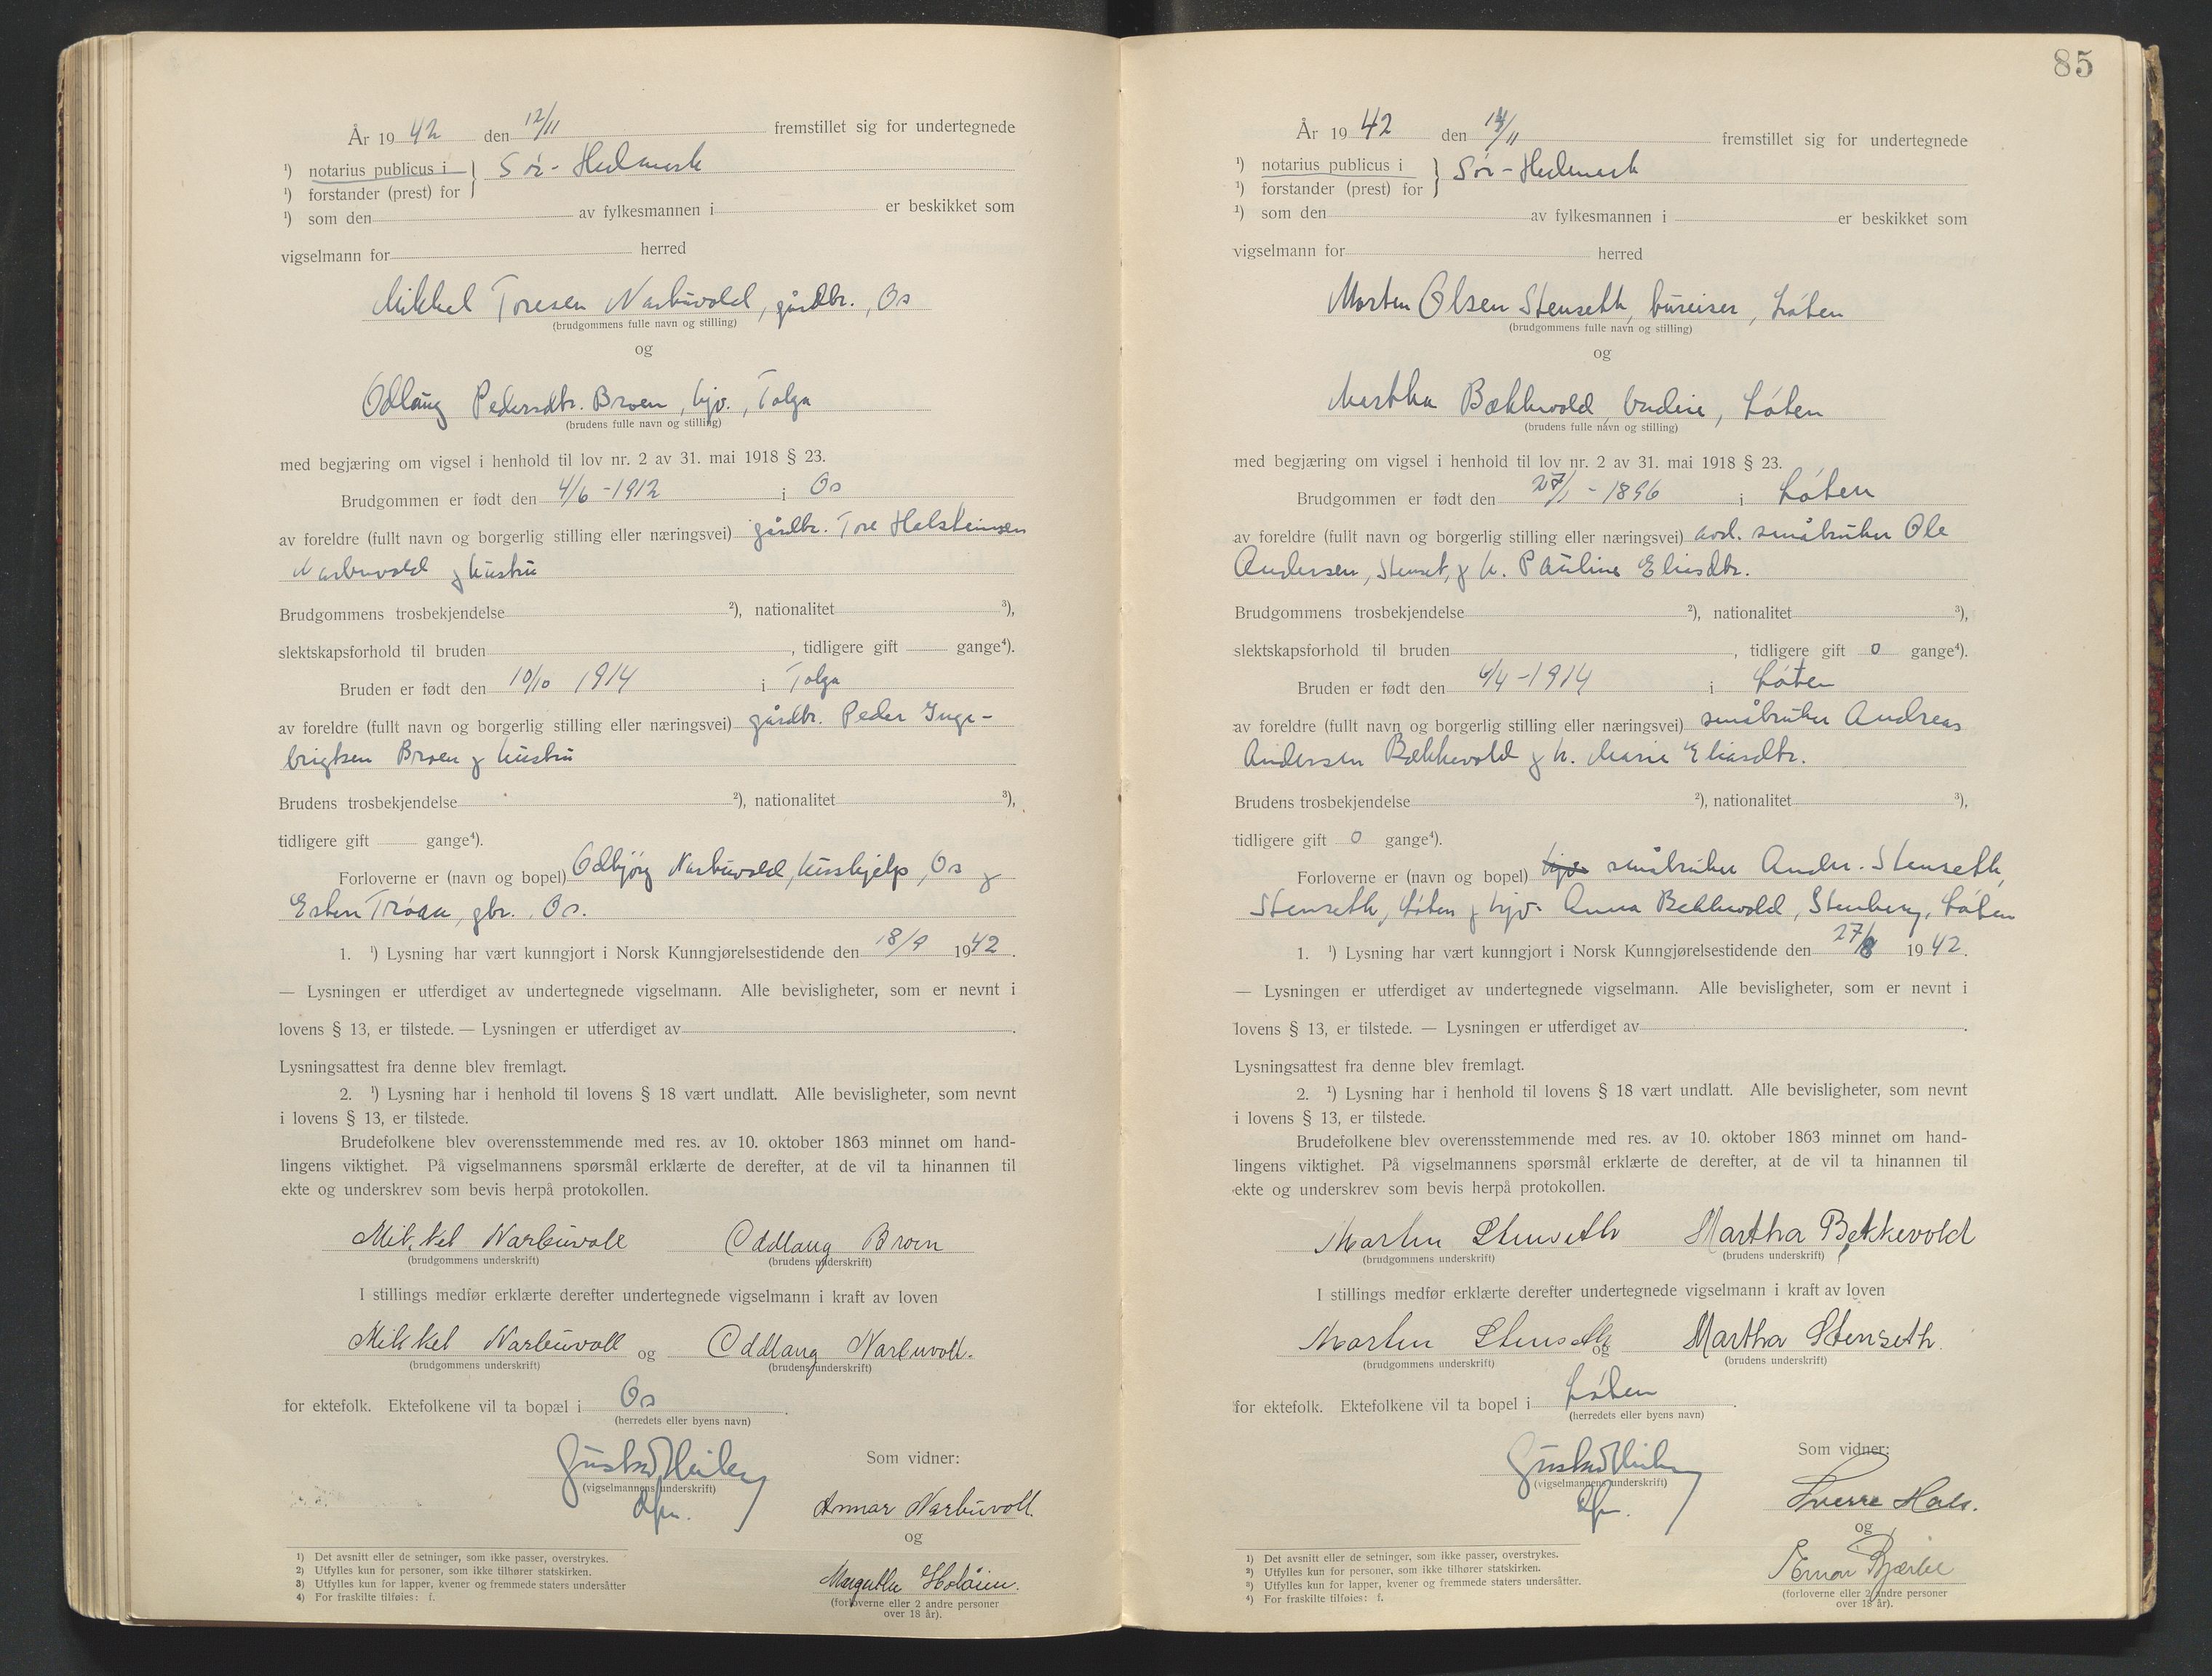 År 19 42 den 12/11 fremstillet sig for undertegnede
¹) notarius publicus i } Sør-Hedmark
¹) forstander (prest) for
¹) som den av fylkesmannen i er beskikket som
vigselmann for herred
Mikkel Toresen Narbuvold, gårdbr., Os
(brudgommens fulle navn og stilling)
og
Odlaug Pedersdtr. Broen, hjv., Tolga
(brudens fulle navn og stilling)
med begjæring om vigsel i henhold til lov nr. 2 av 31. mai 1918 § 23.
Brudgommen er født den 4/6 - 1912 i Os
av foreldre (fullt navn og borgerlig stilling eller næringsvei) gårdbr. Tore Halsteinsen
Narbuvold og hustru
Brudgommens trosbekjendelse ²), nationalitet ³),
slektskapsforhold til bruden , tidligere gift gange⁴).
Bruden er født den 10/10 1914 i Tolga
av foreldre (fullt navn og borgerlig stilling eller næringsvei) gårdbr. Peder Inge-
brigtsen Broen og hustru
Brudens trosbekjendelse ²), nationalitet ³),
tidligere gift gange⁴).
Forloverne er (navn og bopel) Odbjørg Narbuvold, hushjelp, Os og
Esten Trøan, gbr., Os.
1. ¹) Lysning har vært kunngjort i Norsk Kunngjørelsestidende den 18/9 1942.
— Lysningen er utferdiget av undertegnede vigselmann. Alle bevisligheter, som er nevnt i
lovens § 13, er tilstede. — Lysningen er utferdiget av .
Lysningsattest fra denne blev fremlagt.
2. ¹) Lysning har i henhold til lovens § 18 vært undlatt. Alle bevisligheter, som nevnt
i lovens § 13, er tilstede.
Brudefolkene blev overensstemmende med res. av 10. oktober 1863 minnet om hand-
lingens viktighet. På vigselmannens spørsmål erklærte de derefter, at de vil ta hinannen til
ekte og underskrev som bevis herpå protokollen.
Mikkel Narbuvoll Oddlaug Broen
(brudgommens underskrift) (brudens underskrift)
I stillings medfør erklærte derefter undertegnede vigselmann i kraft av loven
Mikkel Narbuvoll og Oddlaug Narbuvoll.
(brudgommens underskrift) (brudens underskrift)
for ektefolk. Ektefolkene vil ta bopæl i Os .
(herredets eller byens navn)
Som vidner:
Gustav Heiberg
(vigselmannens underskrift)
dfm.
Annar Narbuvoll.
og
Margrethe Holøien.
(forloverne eller 2 andre personer
over 18 år).
1) Det avsnitt eller de setninger, som ikke passer, overstrykes.
2) Utfylles kun for personer, som ikke tilhører statskirken.
3) Utfylles kun for lapper, kvener og fremmede staters undersåtter
4) For fraskilte tilføies: f.
85
År 19 42 den 14/11 fremstillet sig for undertegnede
¹) notarius publicus i } Sør-Hedmark
¹) forstander (prest) for
¹) som den av fylkesmannen i er beskikket som
vigselmann for herred
Morten Olsen Stenseth, bureiser, Løten
(brudgommens fulle navn og stilling)
og
Martha Bækkevold, budeie, Løten
(brudens fulle navn og stilling)
med begjæring om vigsel i henhold til lov nr. 2 av 31. mai 1918 § 23.
Brudgommen er født den 27/1 - 1896 i Løten
av foreldre (fullt navn og borgerlig stilling eller næringsvei) avd. småbruker Ole
Andersen, Stenset, og h. Pauline Eliasdtr.
Brudgommens trosbekjendelse ²), nationalitet ³),
slektskapsforhold til bruden , tidligere gift 0 gange⁴).
Bruden er født den 6/4 - 1914 i Løten
av foreldre (fullt navn og borgerlig stilling eller næringsvei) småbruker Andreas
Andersen Bækkevold og h. Marie Eliasdtr.
Brudens trosbekjendelse ²), nationalitet ³),
tidligere gift 0 gange⁴).
Forloverne er (navn og bopel) hjv. småbruker Ander. Stenseth,
Stenseth, Løten og hjv. Anna Bekkevold, Stenberg, Løten
1. ¹) Lysning har vært kunngjort i Norsk Kunngjørelsestidende den 27/8 1942.
— Lysningen er utferdiget av undertegnede vigselmann. Alle bevisligheter, som er nevnt i
lovens § 13, er tilstede. — Lysningen er utferdiget av .
Lysningsattest fra denne blev fremlagt.
2. ¹) Lysning har i henhold til lovens § 18 vært undlatt. Alle bevisligheter, som nevnt
i lovens § 13, er tilstede.
Brudefolkene blev overensstemmende med res. av 10. oktober 1863 minnet om hand-
lingens viktighet. På vigselmannens spørsmål erklærte de derefter, at de vil ta hinannen til
ekte og underskrev som bevis herpå protokollen.
Morten Stenseth Martha Bekkevold
(brudgommens underskrift) (brudens underskrift)
I stillings medfør erklærte derefter undertegnede vigselmann i kraft av loven
Morten Stenseth og Martha Stenseth.
(brudgommens underskrift) (brudens underskrift)
for ektefolk. Ektefolkene vil ta bopel i Løten .
(herredets eller byens navn)
Som vidner:
Gustav Heiberg
(vigselmannens underskrift)
dfm.
Sverre Hals.
og
Bjærke
(forloverne eller 2 andre personer
over 18 år).
¹) Det avsnitt eller de setninger, som ikke passer, overstrykes.
²) Utfylles kun for personer, som ikke tilhører statskirken.
³) Utfylles kun for lapper, kvener og fremmede staters undersåtter.
⁴) For fraskilte tilføies: f.